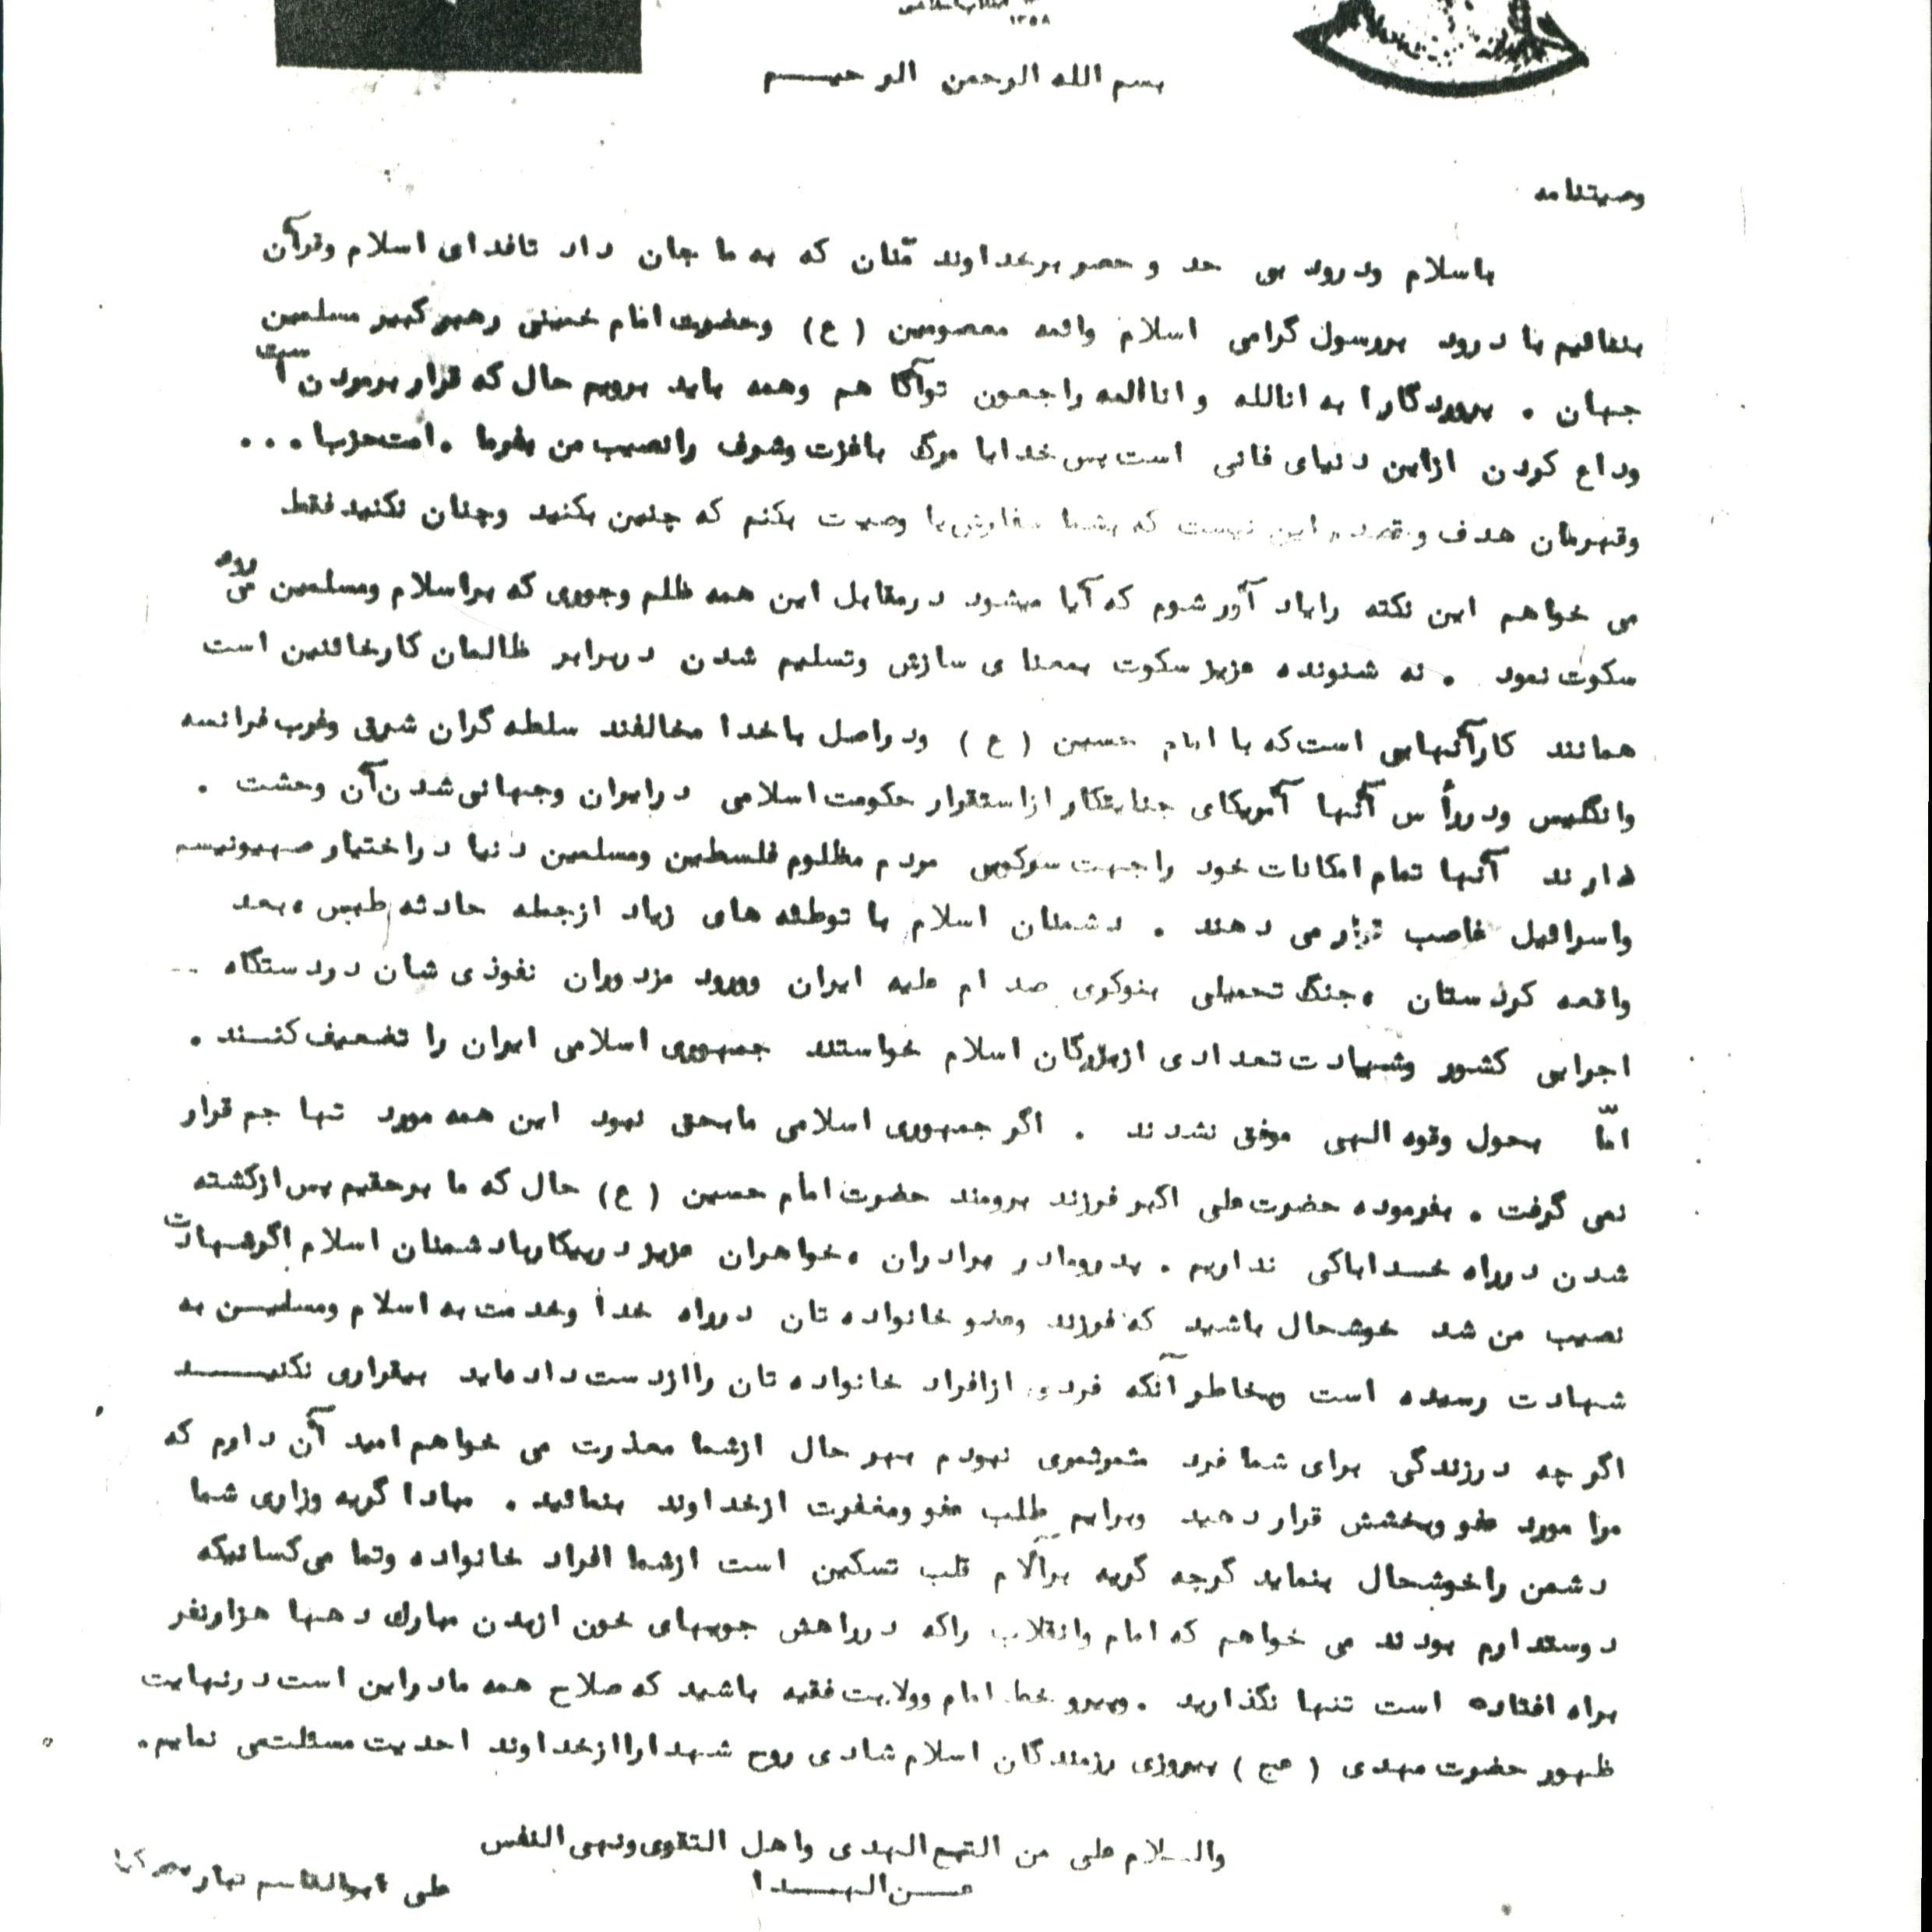 ۱۳۵۸
بسم الله الرحمن الرحیم
وصیتنامه
باسلام ودرود بی حد و حصر برخداوند منّان که به ما جان داد تافدای اسلام وقرآن
بنمائیم با درود بررسول گرامی اسلام وائمه معصومین (ع) وحضرت امام خمینی رهبر کبیر مسلمین
جهان . پروردگارا به انالله و اناالیه راجعون توآگا هم وهمه باید برویم حال که قرار برمردن است
وداع کردن ازاین دنیای فانی است پس خدایا مرگ باعزت وشرف رانصیب من بفرما . امت حزب‌ا...
وقهرمان هدف وقصدم این نیست که بشما سفارش یا وصیت بکنم که چنین بکنید وچنان نکنید فقط
می خواهم این نکته رایاد آور شوم که آیا میشود درمقابل این همه ظلم وجوری که براسلام ومسلمین می رود
سکوت نمود . نه شنونده عزیز سکوت بمعنا ی سازش وتسلیم شدن دربرابر ظالمان کارخائنین است
همانند کارآنهایی است که با امام حسین (ع) ودراصل باخدا مخالفند سلطه گران شرق وغرب فرانسه
وانگلیس ودررأ س آنها آمریکای جنایتکار ازاستقرار حکومت اسلامی درایران وجهانی شدن آن وحشت .
دارند آنها تمام امکانات خود راجهت سرکوبی مردم مظلوم فلسطین ومسلمین دنیا دراختیار صهیونیسم
واسرائیل غاصب قرار می دهند . دشمنان اسلام با توطئه های زیاد ازجمله حادثه طبس ، بعد
واقعه کردستان ، جنگ تحمیلی بنوکری صدام علیه ایران وورود مزدوران نفوذی شان دردستگاه --
اجرایی کشور وشهادت تعدادی ازبزرگان اسلام خواستند جمهوری اسلامی ایران را تضعیف کنند .
امّا بحول وقوه الهی موفق نشدند . اگر جمهوری اسلامی مابحق نبود این همه مورد تهاجم قرار
نمی گرفت . بفرموده حضرت علی اکبر فرزند برومند حضرت امام حسین (ع) حال که ما برحقیم پس ازکشته
شدن درراه خدا باکی نداریم . پدرومادر برادران ، خواهران عزیز درپیکاربادشمنان اسلام اگرشهادت
نصیب من شد خوشحال باشید که فرزند وعضو خانواده تان درراه خدا وخدمت به اسلام ومسلمین به
شهادت رسیده است وبخاطر آنکه فردی ازافراد خانواده تان راازدست داده‌اید بیقراری نکنید
اگر چه درزندگی برای شما فرد مثمرثمری نبودم بهر حال ازشما معذرت می خواهم امید آن دارم که
مرا مورد عفو وبخشش قرار دهید وبرایم طلب عفو ومغفرت ازخداوند بنمائید . مبادا گریه وزاری شما
دشمن راخوشحال بنماید گرچه گریه برآلام قلب تسکین است ازشما افراد خانواده وتما می کسانیکه
دوستدارم بودند می خواهم که امام وانقلاب راکه درراهش جویهای خون ازبدن مبارک دهها هزارنفر
براه افتاده است تنها نگذارید . وپیرو خط امام وولایت فقیه باشید که صلاح همه مادراین است درنهایت
ظهور حضرت مهدی (عج) پیروزی رزمندگان اسلام شادی روح شهداراازخداوند احدیت مسئلت می نمایم .
والسلام علی من التبع الهدی واهل التقوی ونهی النفس
علی ابوالقاسم تبار